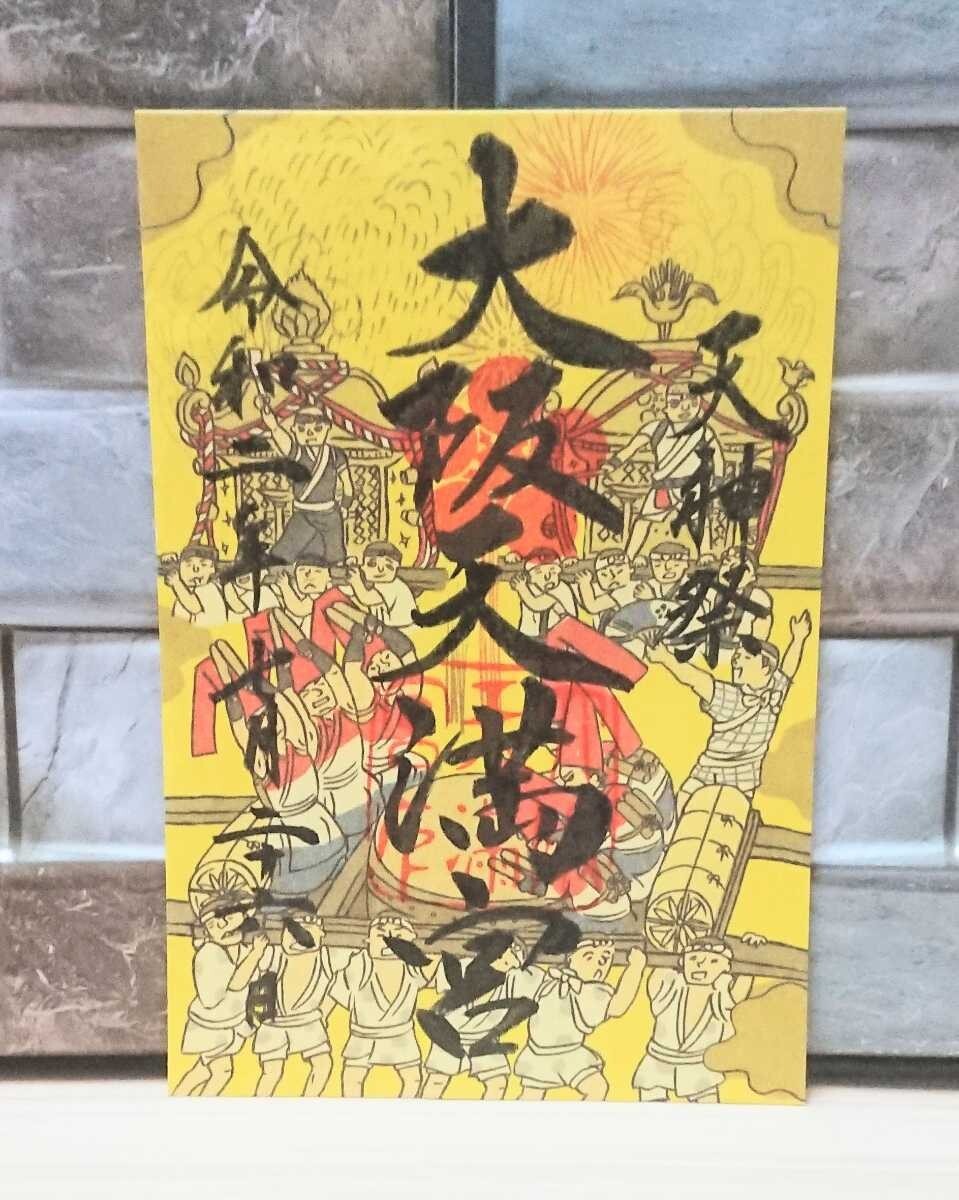 天神祭
大阪天満宮
令和二年七月二十二日